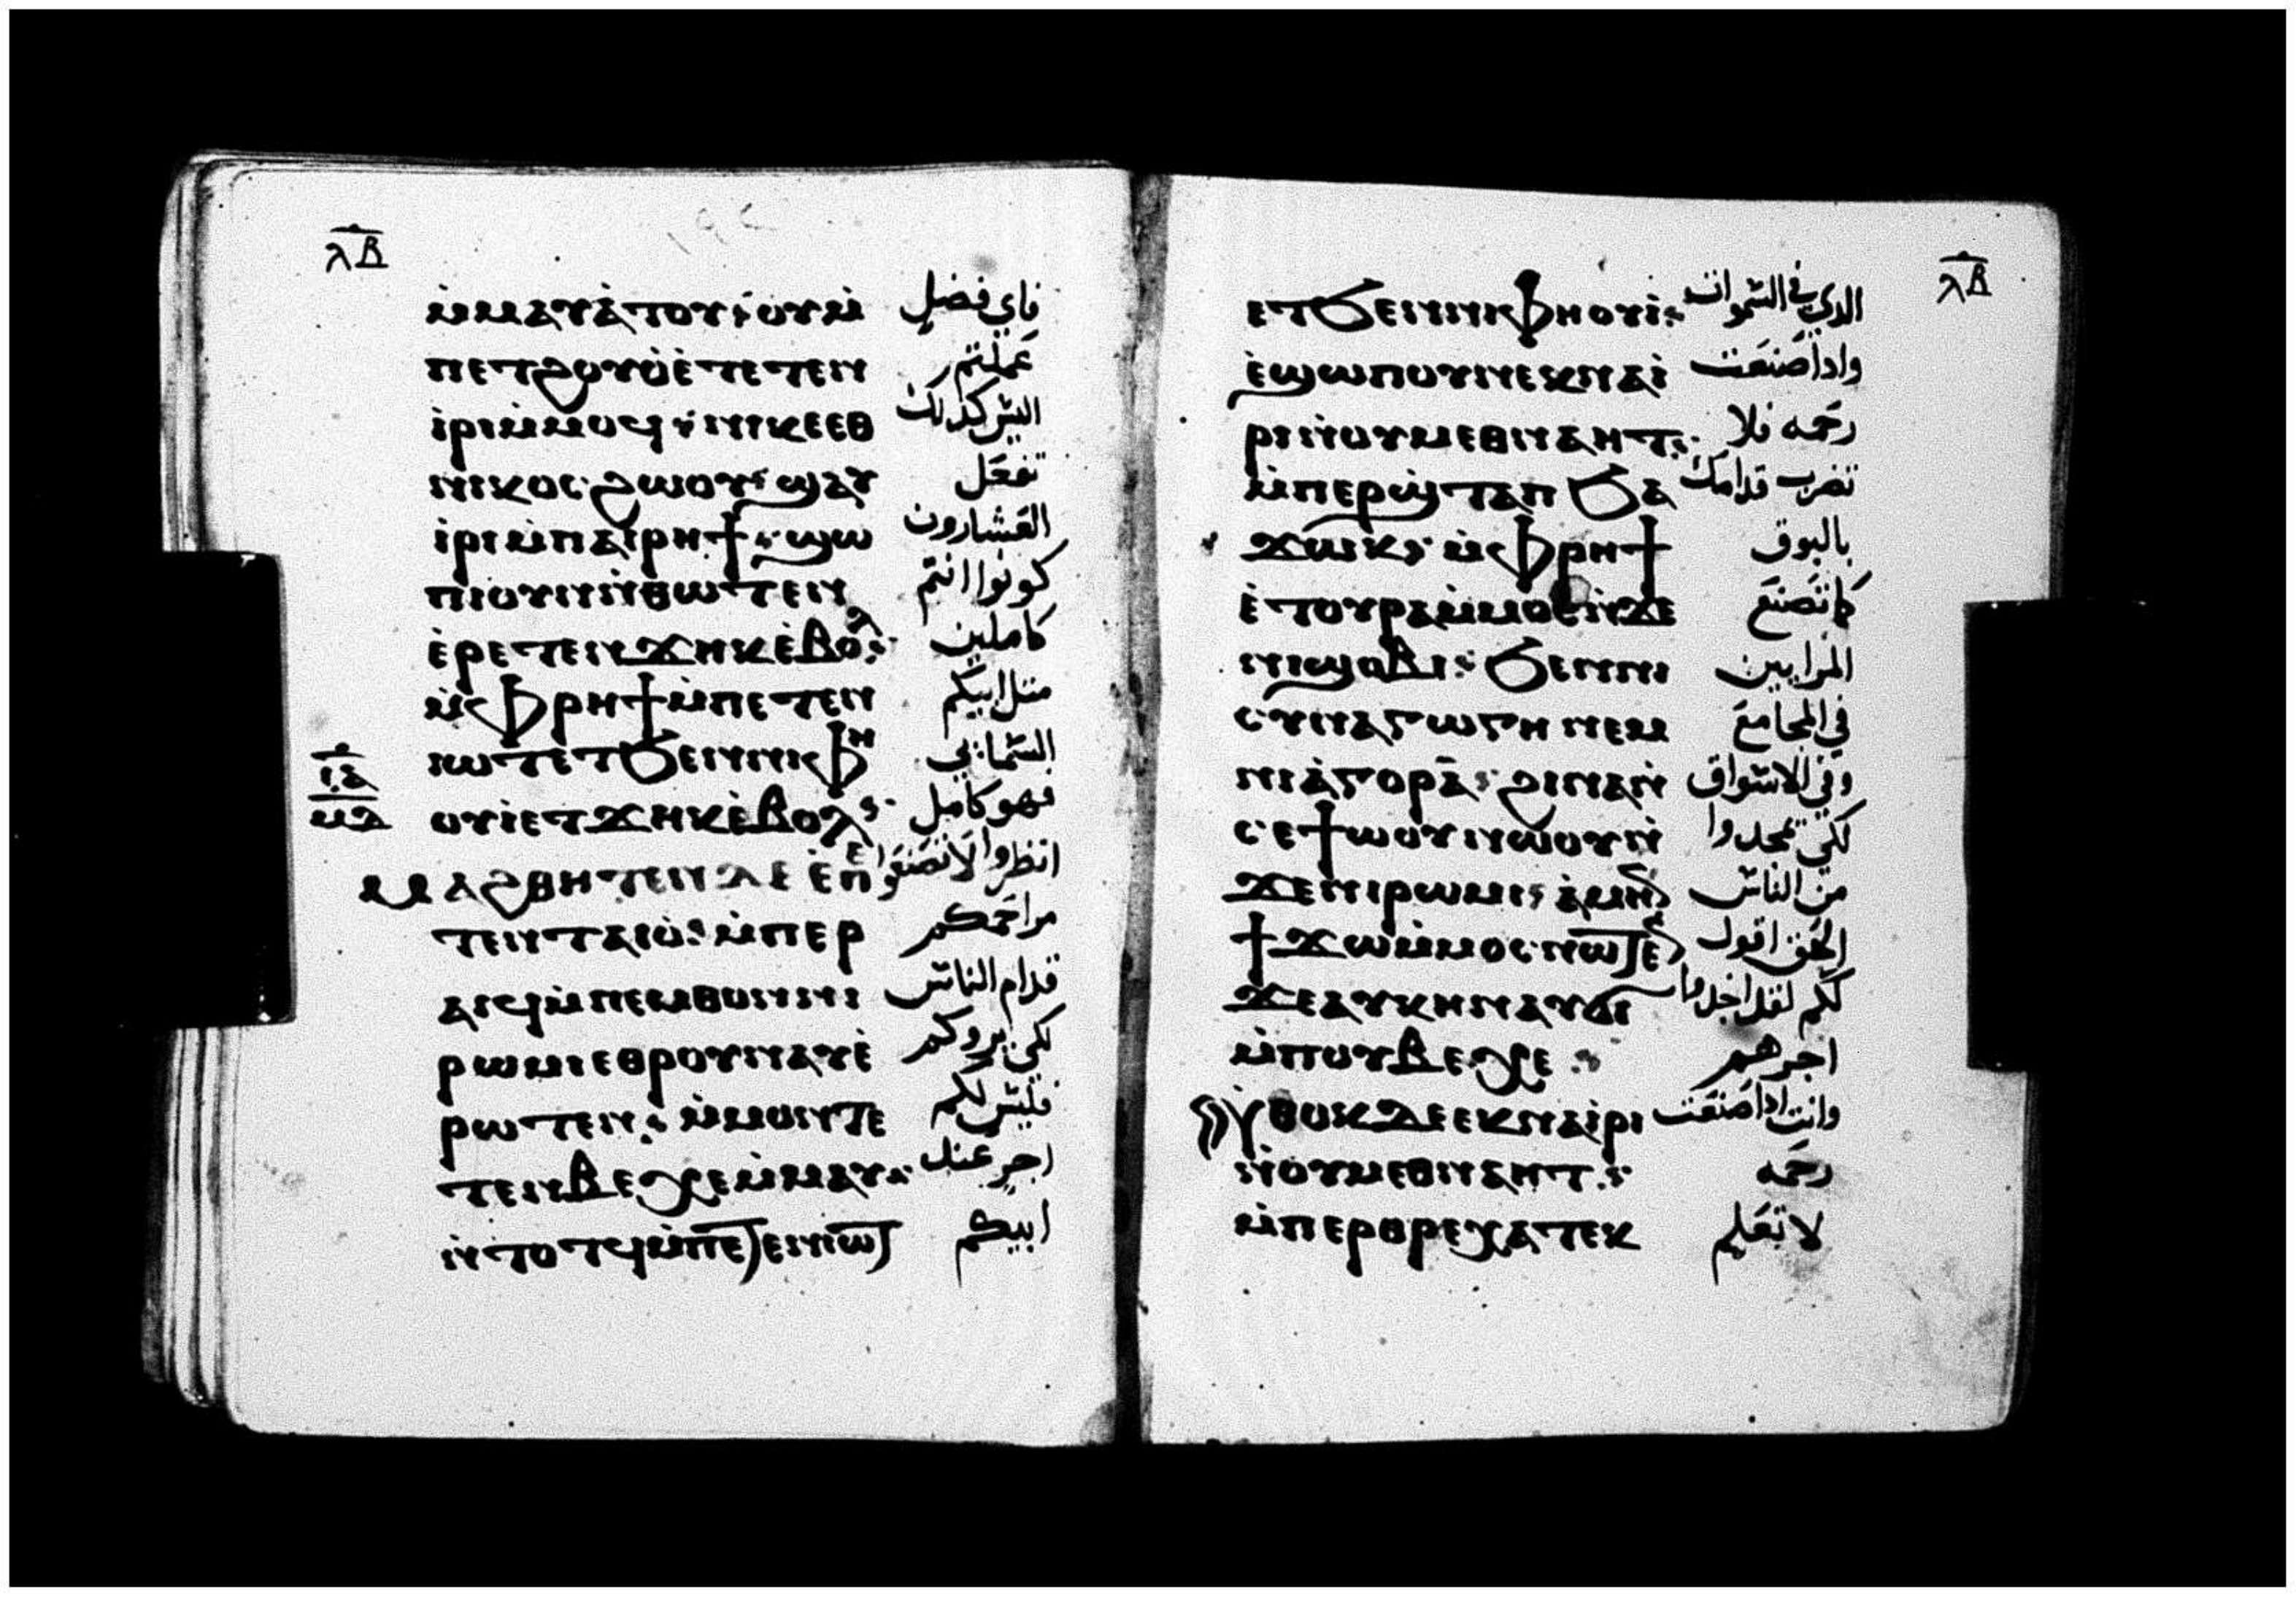 ⲗ̅ⲃ̅
ⲙ̀ⲙⲁⲩⲁ̀ⲧⲟⲩ⸵ⲟⲩⲙ̀ فاي فضل
ⲡⲉⲧϩⲟⲩⲟ̀ⲉ̀ⲧⲉⲧⲉⲛ عملتم
ⲓ̀ⲣⲓⲙ̀ⲙⲟϥ⸵ⲛⲓⲕⲉⲉⲑ اليس كذلك
ⲛⲓⲕⲟⲥ ϩⲱⲟⲩ⸵ϣⲁⲩ تفعل
ⲓ̀ⲣⲓⲙ̀ⲡⲁⲓⲣⲏϯ⸵ϣⲱ العشارون
ⲡⲓⲟⲩⲛⲛ̀ⲑⲱⲧⲉⲛ كونوا انتم
ⲉ̀ⲣⲉⲧⲉⲛϫⲏⲕⲉ̀ⲃⲟⲗ⸵ كاملين
ⲙ̀ⲫⲣⲏϯⲙ̀ⲡⲉⲧⲉⲛ مثل ابيكم
ⲓⲱⲧⲉⲧϧⲉⲛⲛⲓⲫⲏ السمايي
ⲟⲩⲓ̀ⲉⲧϫⲏⲕⲉ̀ⲃⲟⲗ⸵ فهو كامل
ⲙⲁϩⲑⲏⲧⲉⲛⲇⲉ ⲉ̀ⲡⲉ انظروا لا تصنعوا
ⲧⲉⲛⲧⲁⲓⲟ̀⸵ⲙ̀ⲡⲉⲣ مراحمكم
ⲁⲓϥⲙ̀ⲡⲉⲙⲑⲟⲛⲛⲓ قدام الناس
ⲣⲱⲙⲓⲉⲑⲣⲟⲩⲛⲁⲩⲉ̀ لكي يروكم
ⲣⲱⲧⲉⲛ⸵ ⲙ̀ⲙⲟⲛⲧⲉ فليس لكم
ⲧⲉⲛⲃⲉⲭⲉⲙ̀ⲙⲁⲩ⸵ اجر عند
ⲛ̀ⲧⲟⲧϥⲙ̀ⲡⲉⲧⲉⲛⲓⲱⲧ ابيكم
ⲗ̅ⲃ̅
ⲉⲧϧⲉⲛⲛⲓⲫⲏⲟⲩⲓ̀⸵ الدي في السموات
ⲉ̀ϣⲱⲡⲟⲩⲛⲉⲕⲛⲁⲓ̀ وادا صنعت
ⲣⲓⲛ̀ⲟⲩⲙⲉⲑⲛⲁⲏⲧ⸵ رحمه فلا
ⲙ̀ⲡⲉⲣⲱ̀ϣⲧⲁⲡ ϧⲁ تضرب قدامك
ϫⲱⲕ⸵ ⲙ̀ⲫⲣⲏϯ بالبوق
ⲉ̀ⲧⲟⲩⲣⲁⲙ̀ⲙⲟⲥⲛ̀ϫⲉ كما تصنع
ⲛⲓϣⲟⲃⲓ⸵ ϧⲉⲛⲛⲓ المرايين
ⲥⲩⲛⲁⲅⲱⲅⲏ ⲛⲉⲙ في المجامع
ⲛⲓⲁ̀ⲅⲟⲣⲁ̀⸵ ϩⲓⲛⲁⲛ̀ وفي الاسواق
ⲥⲉϯⲱⲟⲩⲛⲱⲟⲩⲛ̀ لكي يمجدوا
ϫⲉⲛⲓⲣⲱⲙⲓ⸵ ⲁ̀ⲙⲏⲛ من الناس
ϯϫⲱⲙ̀ⲙⲟⲥⲛⲱⲧⲉⲛ الحق اقول
ϫⲉⲁⲩⲕⲏⲛⲁⲩϭⲓ لكم لقد اخدوا
ⲙ̀ⲡⲟⲩⲃⲉⲭⲉ⸵ اجرهم
ⲛ̀ⲑⲟⲕⲇⲉⲉⲕⲛⲁⲓ̀ⲣⲓ وانت ادا صنعت
ⲛ̀ⲟⲩⲙⲉⲑⲛⲁⲏⲧ⸵ رحمه
ⲙ̀ⲡⲉⲣⲑⲣⲉⲭⲁⲧⲉⲕ لا تعلم